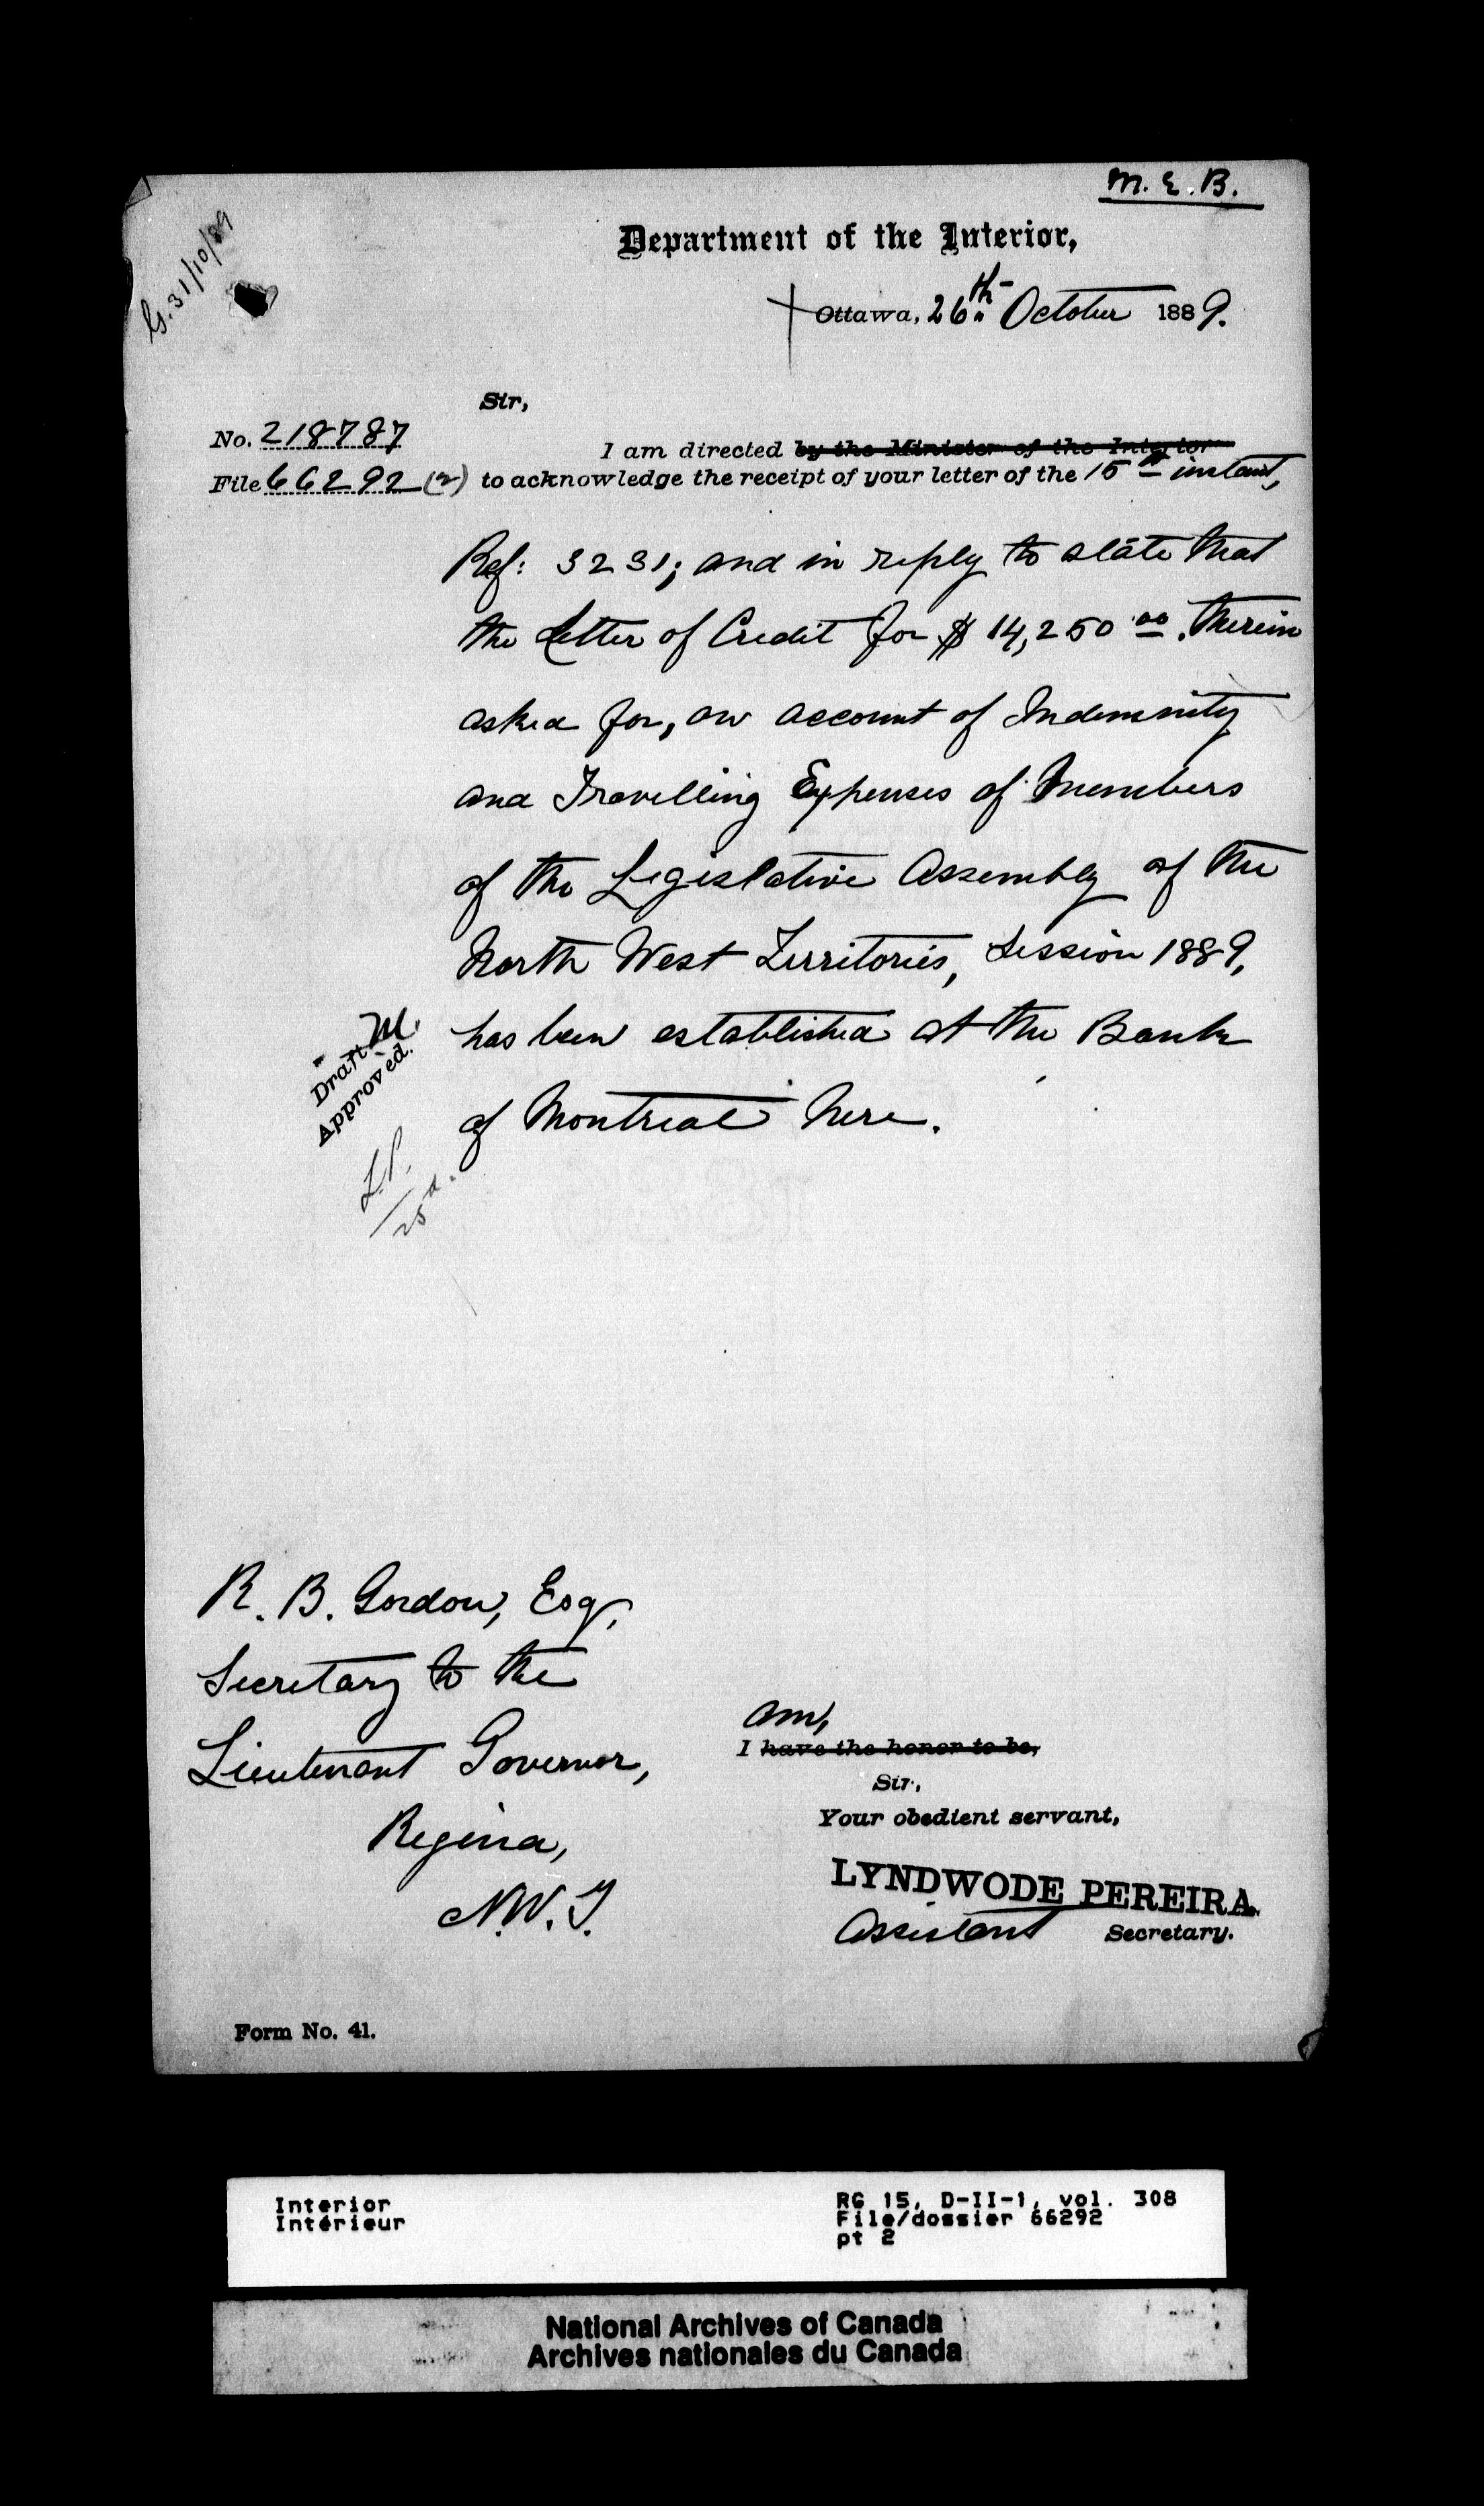 M. E. B.
G. 31/10/89
Department of the Interior,
Ottawa, 26th October 1889.
Sir,
No. 218787
I am directed by the Minister of the Interior
File 66292 (2) to acknowledge the receipt of your letter of the 15th instant,
Ref: 3231; and in reply to state that
the Letter of Credit for $14,250 00. therein
asked for, on account of Indemnity
and Travelling Expenses of Members
of the Legislative Assembly of the
North West Territories, Session 1889,
has been established at the Bank
of Montreal here.
M.
Draft
Approved.
L.P.
25
R. B. Gordon, Esq,
Secretary to the
Lieutenant Governor,
Regina,
N.W.T.
am,
I have the honor to be,
Sir,
Your obedient servant,
LYNDWODE PEREIRA.
Assistant Secretary.
Form No. 41.
Interior
Intérieur
RG 15, D-II-1, vol. 308
File/dossier 66292
pt 2
National Archives of Canada
Archives nationales du Canada